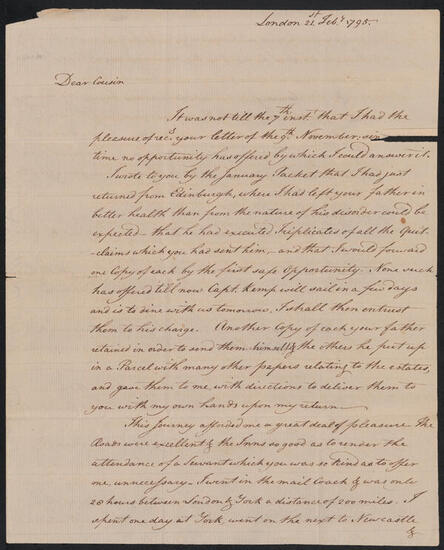 London 21st Feby 1795.
Dear Cousin
It was not till the 7th inst. that I had the
pleasure of recg. your letter of the 9th November;
time no opportunity has offered by which I could answer it.
I wrote to you by the January Packet that I had just
returned from Edinburgh, where I had left your father in
better health than from the nature of his disorder could be
expected - that he had executed Triplicates of all the Quit-
claims which you had sent him, - and that I would forward
one copy of each by the first safe Opportunity. None such
has offered till now Capt. Kemp will sail in a few days
and is to dine with us tomorrow. I shall then entrust
them to his charge. Another Copy of each your father
retained in order to send them himself & the others he put up
in a Parcel with many other papers relating to the estates,
and gave them to me with directions to deliver them to
you with my own hands upon my return -
This Journey afforded me a great deal of pleasure. The
Roads were excellent & the Inns so good as to render the
attendance of a Servant which you was so kind as to offer
me, unnecessary. - I went in the mail Coach & was only
28 hours between London & York a distance of 200 miles. I
spent one day at York, went on the next to Newcastle
&